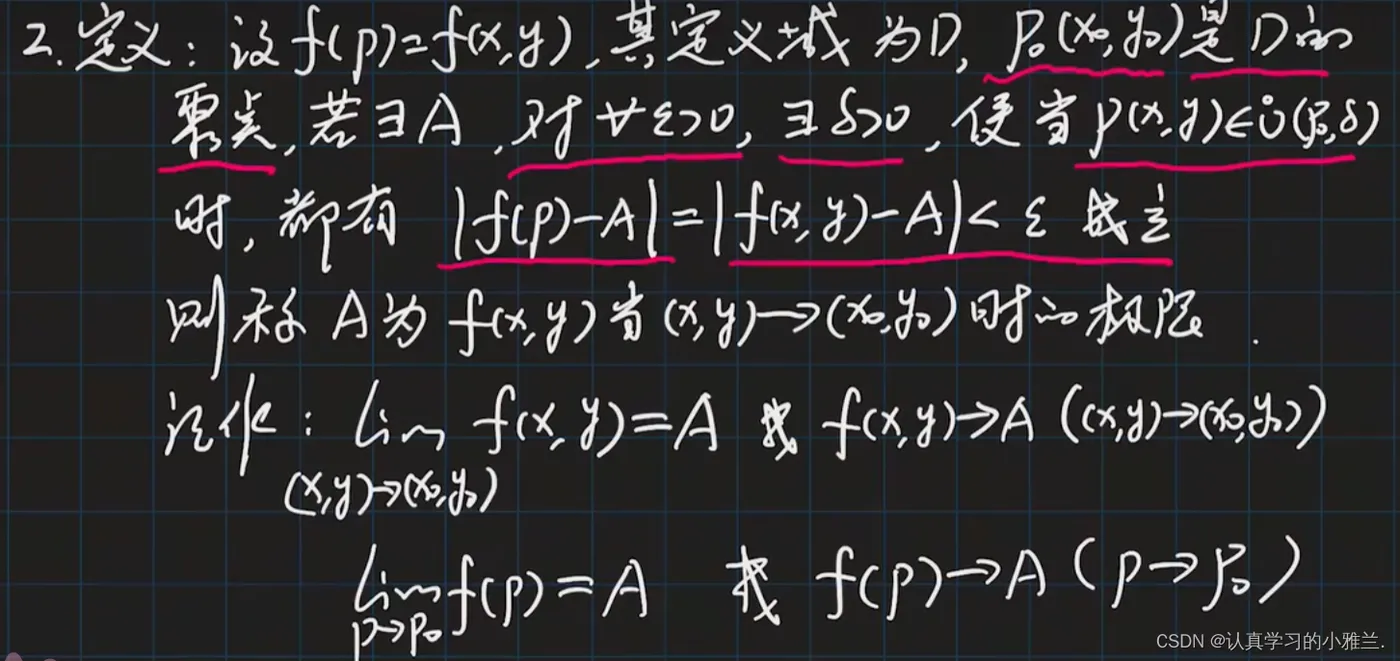 2.定义:设f(p)=f(x,y),其定义域为D,P₀(x₀,y₀)是D的
聚点,若∃A,对∀ε>0,∃δ>0,使当p(x,y)∈Ů(P₀,δ)
时,都有|f(p)-A|=|f(x,y)-A|<ε成立
则称A为f(x,y)当(x,y)→(x₀,y₀)时的极限.
记作:lim f(x,y)=A 或 f(x,y)→A((x,y)→(x₀,y₀))
(x,y)→(x₀,y₀)
lim f(p)=A 或 f(p)→A(p→P₀)
p→p₀
CSDN @认真学习的小雅兰.